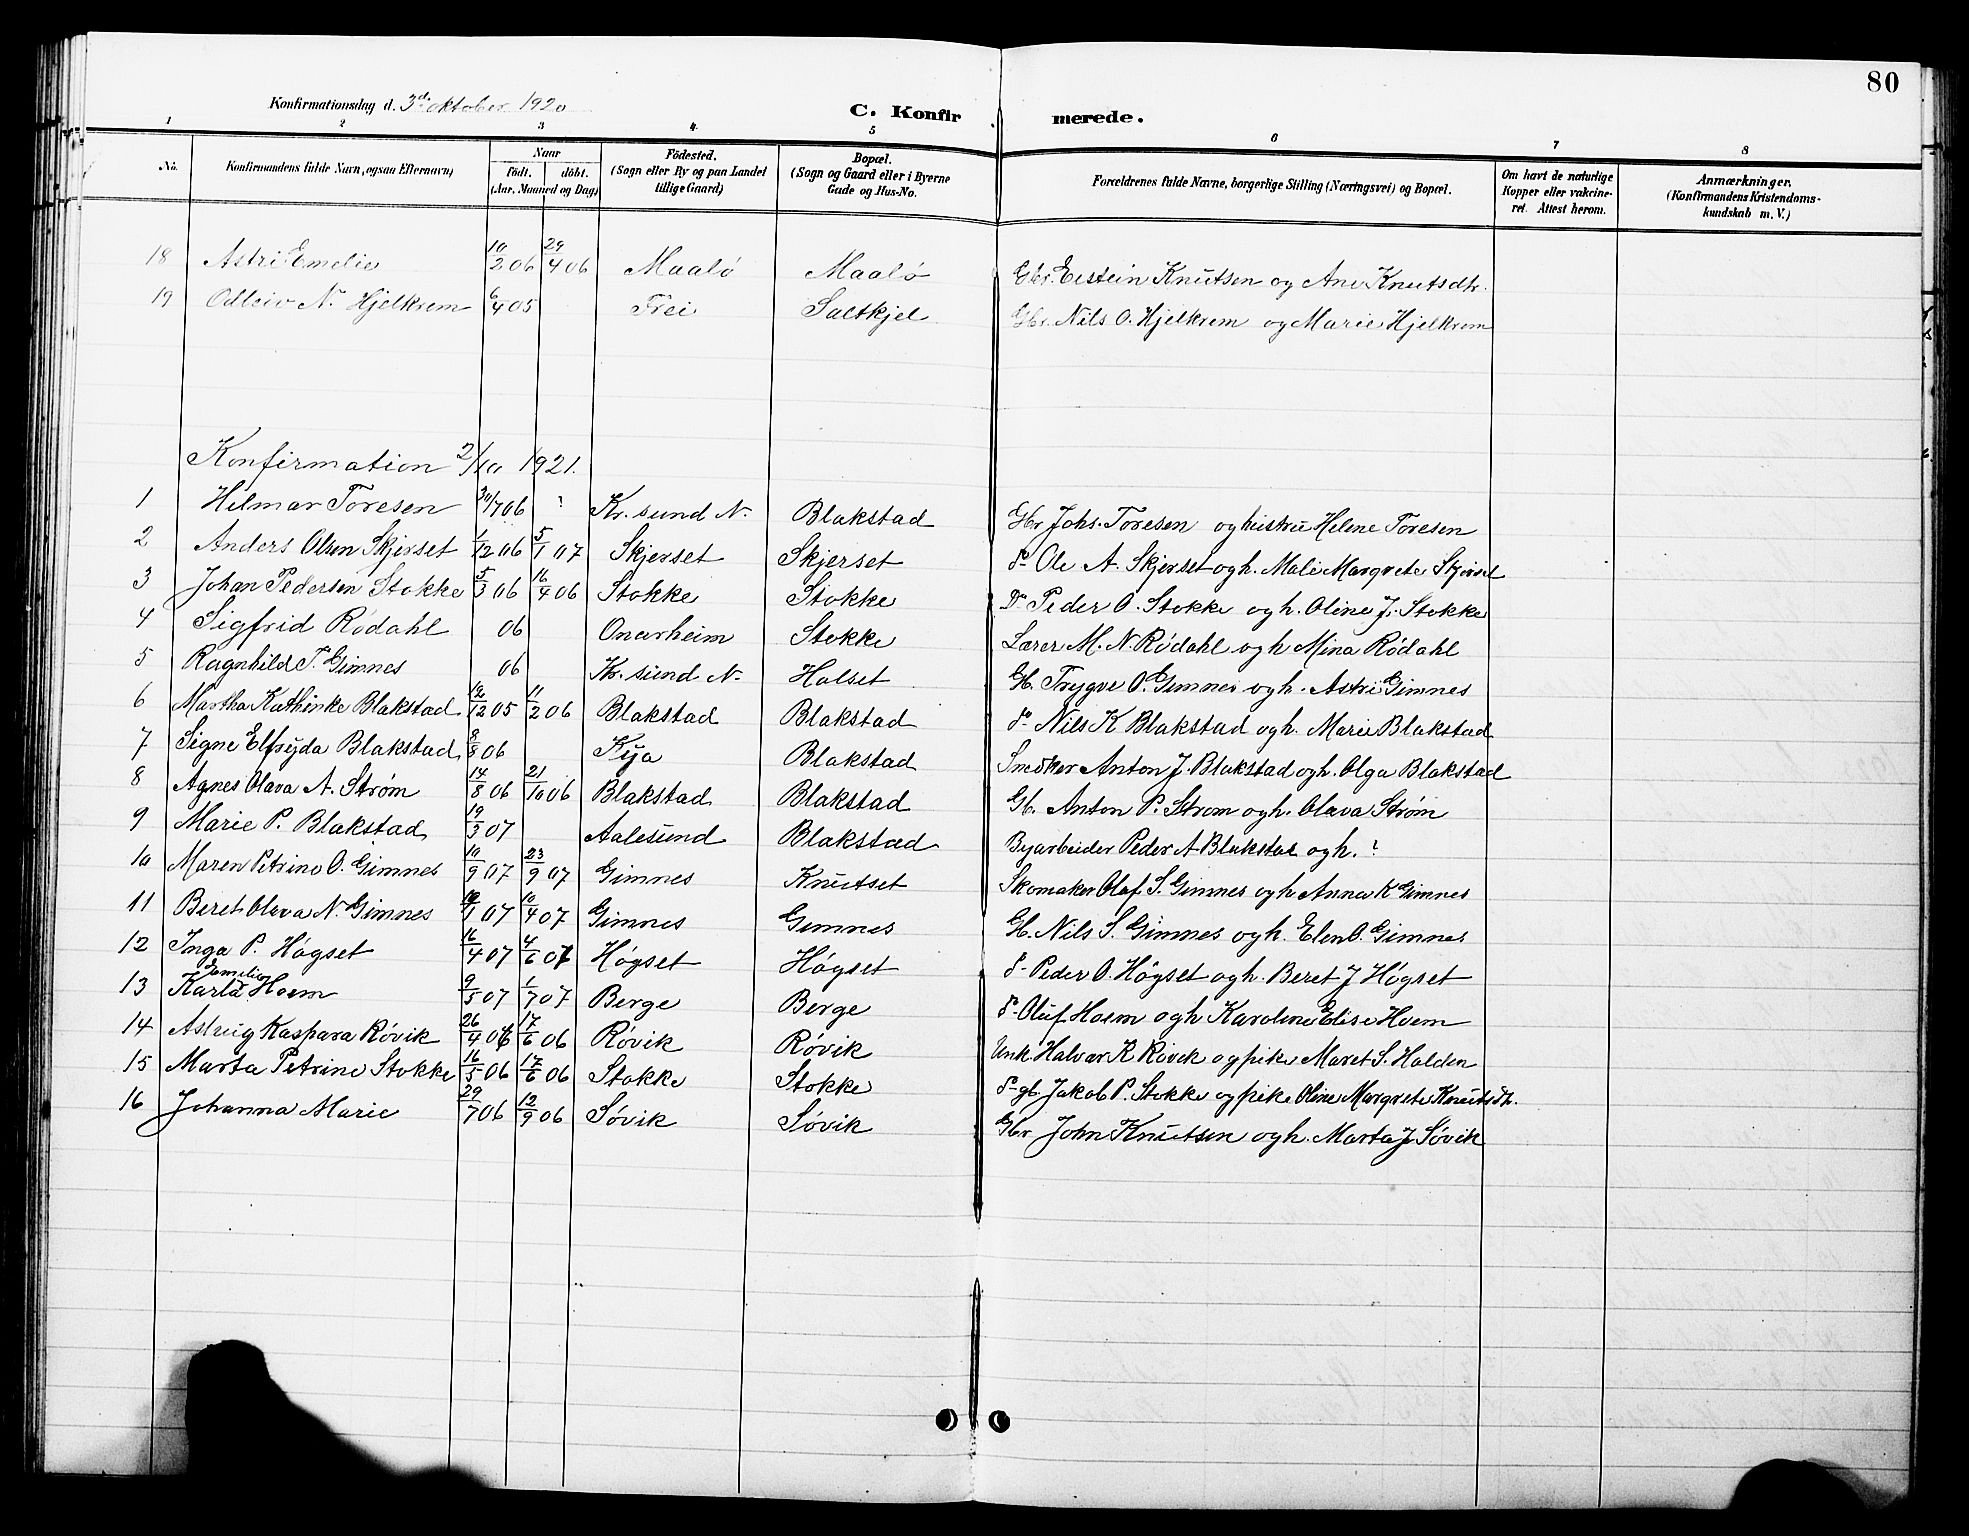 80
Konfirmationsdag d. 3d. oktober 1920
C. Konfirmerede.
1 2 3 4 5 6 7 8
No. Konfirmandens fulde Navn, ogsaa Efternavn) Naar födt. döbt. (Aar, Maaned og Dag) Födested. (Sogn eller By og paa Landet tillige Gaard) Bopæl. (Sogn og Gaard eller i Byerne Gade og Hus-No. Forældrenes fulde Navne, borgerlige Stilling (Næringsvei) og Bopæl. Om havt de naturlige Kopper eller vakcineret. Attest herom. Anmærkninger. (Konfirmandens Kristendomskundskab m. V.)
18 Astri Emelie 10/2 06 29/4 06 Maalö Maalö Gbr. Eistein Knutsen og Ane Knutsdtr.
19 Odleiv N. Hjelkrem 6/4 05 Frei Saltkjel Gbr. Nils O. Hjelkrem og Marie Hjelkrem
Konfirmation 2/10 1921.
1 Helmar Toresen 30/7 06 ? Kr. sund N. Blakstad Gbr Johs. Toresen og hustru Helene Toresen
2 Anders Olsen Skjerset 1/12 06 5/1 07 Skjerset Skjerset do Ole A. Skjerset og h. Mali Margrete Skjerset
3 Johan Pedersen Stokke 5/3 06 16/4 06 Stokke Stokke Do Peder O. Stokke og h. Oline J. Stokke
4 Sigfrid Rödahl 06 Onarheim Stokke Lærer M. N. Rödahl og h Mina Rödahl
5 Ragnhild T. Gimnes 06 Kr. sund N. Halset Gb. Trygve O. Gimnes og h. Astri Gimnes
6 Martha Kathinke Blakstad 12/12 05 11/2 06 Blakstad Blakstad do Nils K Blakstad og h. Marie Blakstad
7 Signe Elfryda Blakstad 8/8 06 Kya Blakstad Snedker Anton J. Blakstad og h. Olga Blakstad
8 Agnes Olava A. Strøm 14/8 06 21/10 06 Blakstad Blakstad Gb. Anton P. Strøm og h. Olava Strøm
9 Marie P. Blakstad 19/3 07 Aalesund Blakstad Byarbeider Peder A Blakstad og h. ?
10 Maren Petrine O. Gimnes 10/9 07 23/9 07 Gimnes Knutset Skomaker Olaf S. Gimnes og h Anne K Gimnes
11 Beret Olava N. Gimnes /1 07 10/4 07 Gimnes Gimnes Gb. Nils S. Gimnes og h. Elen O. Gimnes
12 Inga P. Högset 16/4 07 4/6 07 Högset Högset do Peder O. Högset og h. Beret J Högset
13 Karla Emelie Hoem 9/5 07 1/7 07 Berge Berge do Oluf Hoem og h Karoline Elise Hoem
14 Astrug Kaspara Rövik 26/4 06 17/6 06 Rövik Rövik Unk. Halvar K Rövik og pike Maret S. Halden
15 Marta Petrine Stokke 16/5 06 17/6 06 Stokke Stokke do gb Jakob P. Stokke og pike Oline Margrete Knutsdt.
16 Johanna Marie 29/7 06 12/9 06 Sövik Sövik Gbr John Knutsen og h. Marta J Sövik